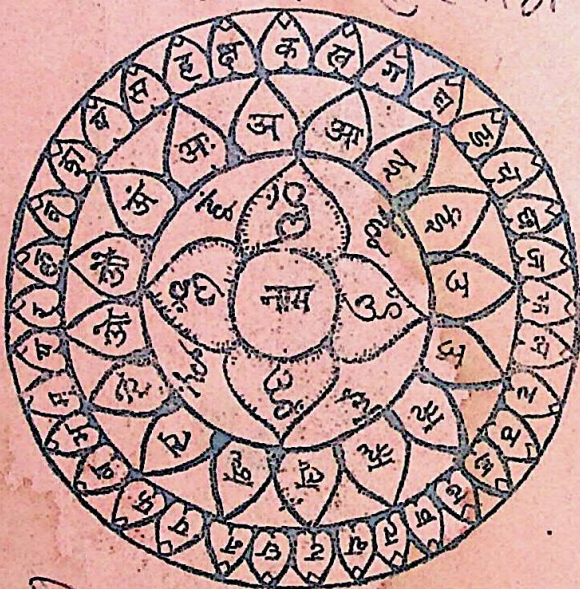 नाम
ॐ
ॐ
ॐ
ॐ
अ
आ
इ
ई
उ
ऊ
ऋ
ॠ
ऌ
ॡ
ए
ऐ
ओ
औ
अं
अः
क
ख
ग
घ
ङ
च
छ
ज
झ
ञ
ट
ठ
ड
ढ
ण
त
थ
द
ध
न
प
फ
ब
भ
म
य
र
ल
व
श
ष
स
ह
क्ष